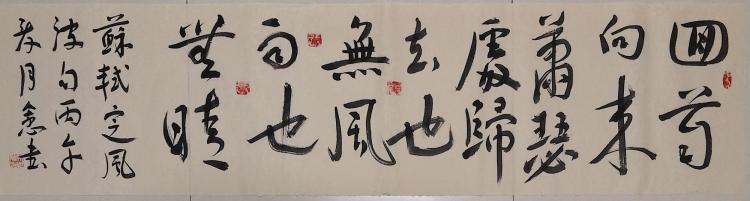 回首
向來
蕭瑟
處歸
去也
無風
雨也
無晴
蘇軾定風
波句丙午
月書